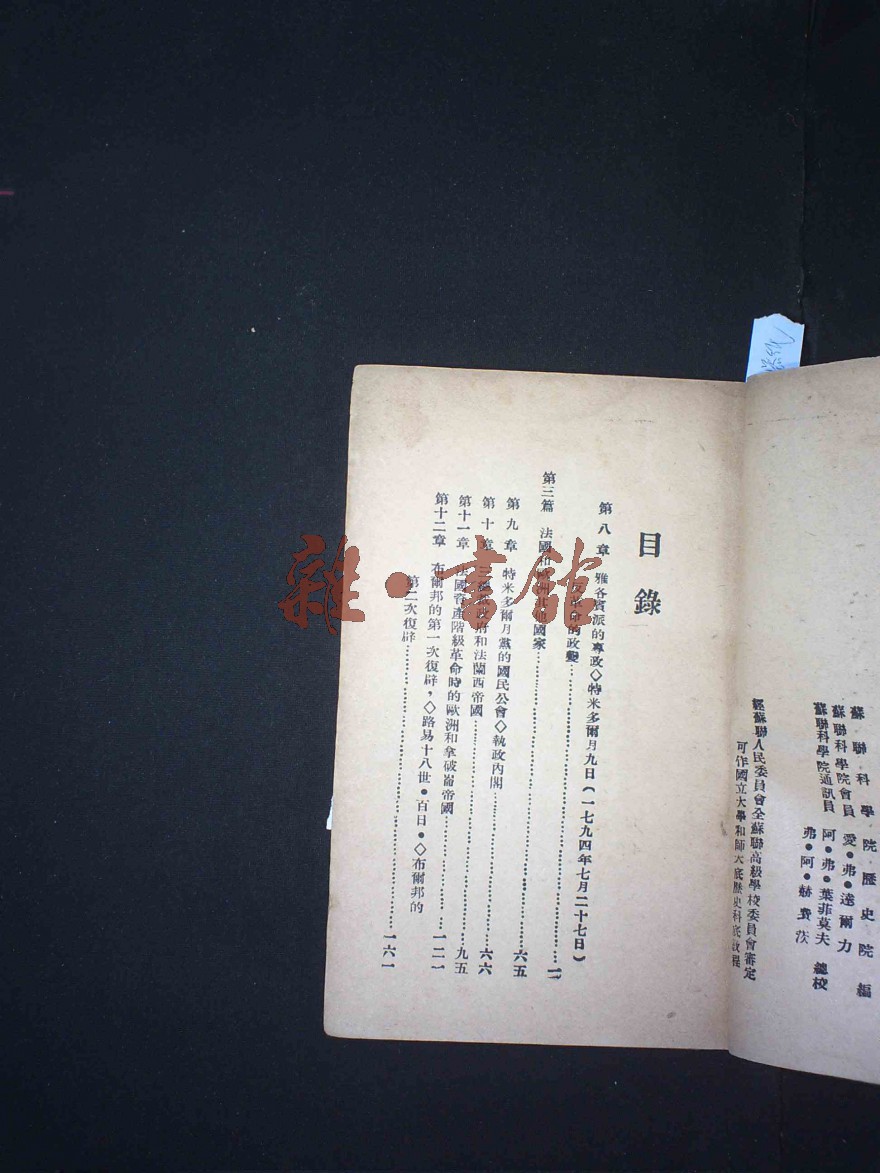 蘇聯科學院歷史院編
蘇聯科學院會員 愛•弗•達爾力
蘇聯科學院會員 阿•弗•葉菲莫夫 總校
蘇聯科學院通訊員 弗•阿•赫費茨
經蘇聯人民委員會全蘇聯高級學校委員會審定
可作國立大學和師大底歷史科底教程
目錄
第八章 雅各賓派的專政◇特米多爾月九日(一七九四年七月二十七日)
反革命的政變
第三篇 法國和歐洲其他國家
第九章 特米多爾月黨的國民公會◇執政內閣 六五
第十章 三執政政府和法蘭西帝國 六六
第十一章 法國資產階級革命時的歐洲和拿破崙帝國 九五
第十二章 布爾邦的第一次復辟,◇路易十八世•百日•◇布爾邦的 一二一
第二次復辟 一六一
雜•書館